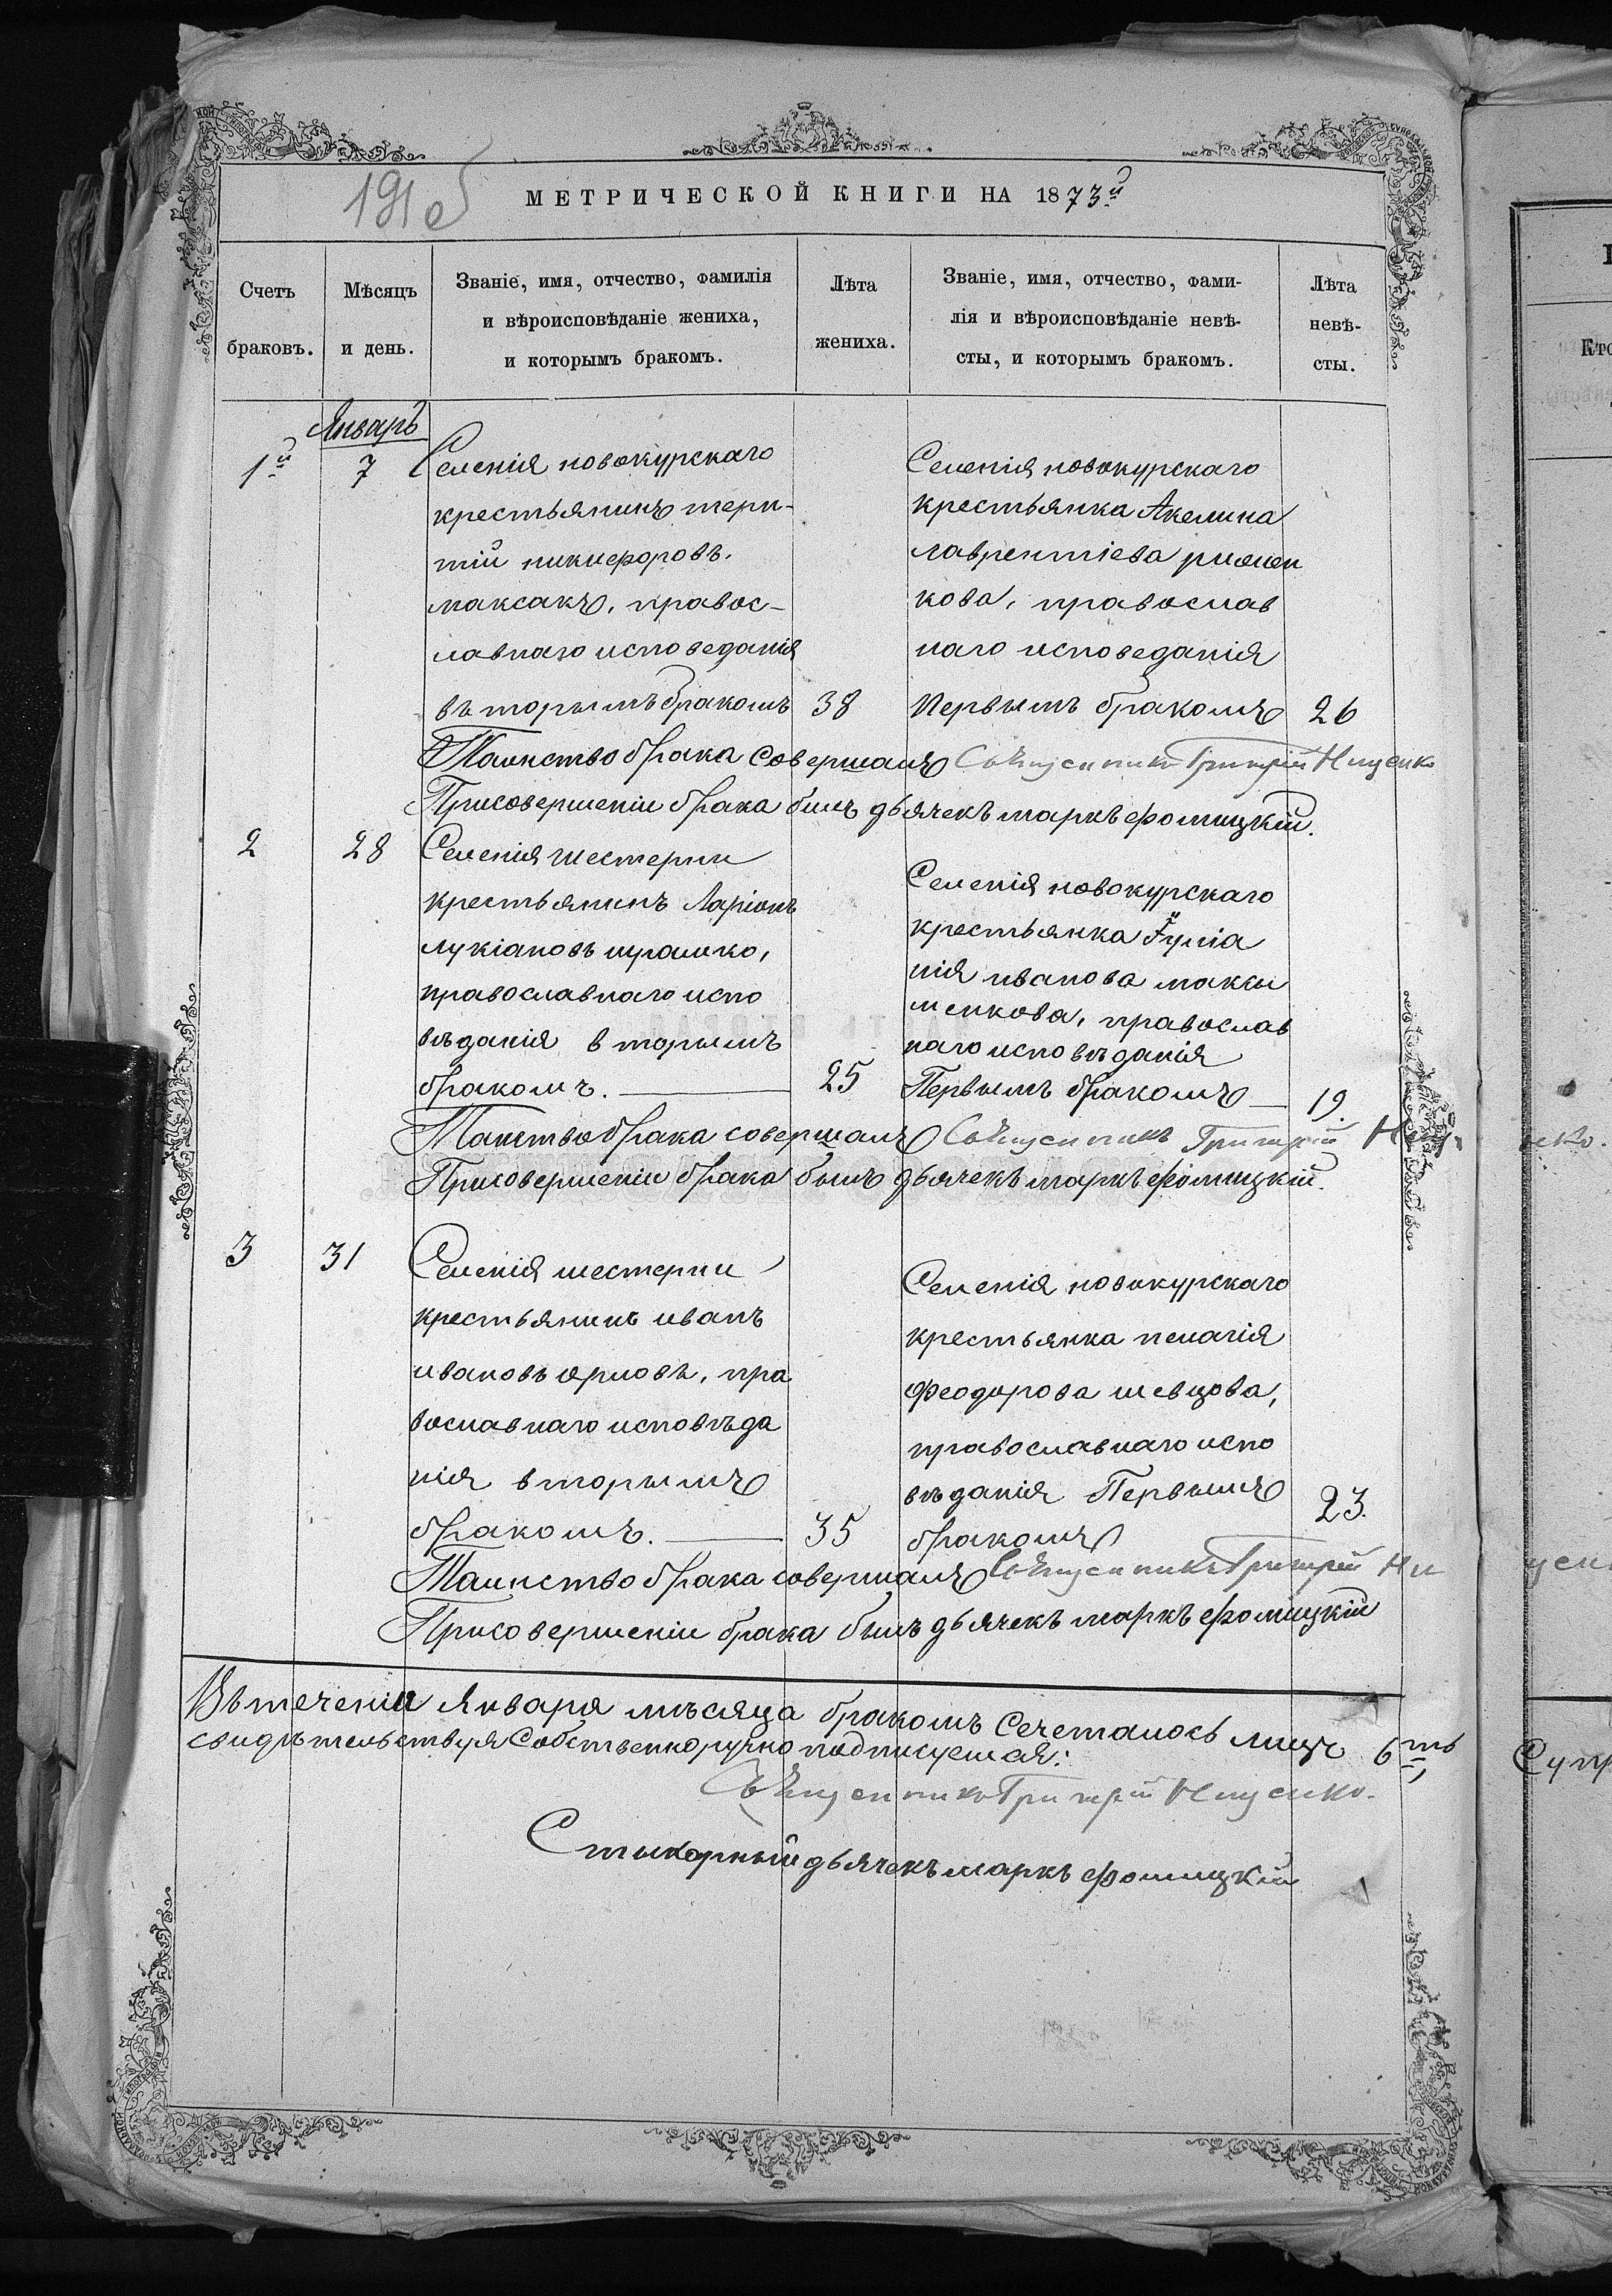 191 об
МЕТРИЧЕСКОЙ КНИГИ НА 1873й
Счетъ браковъ.
Мѣсяцъ и день.
Званіе, имя, отчество, фамилія
и вѣроисповѣданіе жениха,
и которымъ бракомъ.
Лѣта жениха.
Званіе, имя, отчество, фами-
лія и вѣроисповѣданіе невѣ-
сты, и которымъ бракомъ.
Лѣта невѣ-
сты.
Январь
1й
7
Селенія новокурскаго
крестьянинъ терн-
тій никифоровъ
максакъ, правос-
лавнаго исповеданія
вторымъ бракомъ
38
Селенія новокурскаго
крестьянка Акелина
лаврентіева
кова, православ
наго исповеданія
Первымъ бракомъ
26
Таинство брака совершалъ Священникъ Григорій Нищенко
Присовершеніи брака былъ дьячекъ маркъ фомицкій.
2
28
Селенія шестерни
крестьянинъ Ларіонъ
лукіановъ
православнаго испо
вѣданія вторымъ
бракомъ.
25
Селенія новокурскаго
крестьянка Іуліа
нія иванова макси
менкова, православ
наго исповѣданія
Первымъ бракомъ
19.
Таинство брака совершалъ Священникъ Григорій Нищ
енко.
Присовершеніи брака былъ дьячекъ маркъ фомицкій.
3
31
Селенія шестерни
крестьянинъ иванъ
ивановъ орловъ, пра
вославнаго исповѣда
нія вторымъ
бракомъ.
35
Селенія новокурскаго
крестьянка пелагія
феодорова шевцова,
православнаго испо
вѣданія Первымъ
бракомъ
23.
Таинство брака совершалъ Священникъ Григорій Ни
щен
Присовершеніи брака былъ дьячекъ маркъ фомицкій
Въ теченіи Января мѣсяца бракомъ сечеталось лицъ 6ть,
свидѣтельствуя Собственноручно подписуемся:
Священникъ Григорій Нищенко.
Стихарный дьячекъ маркъ фомицкій
Кто
Супр